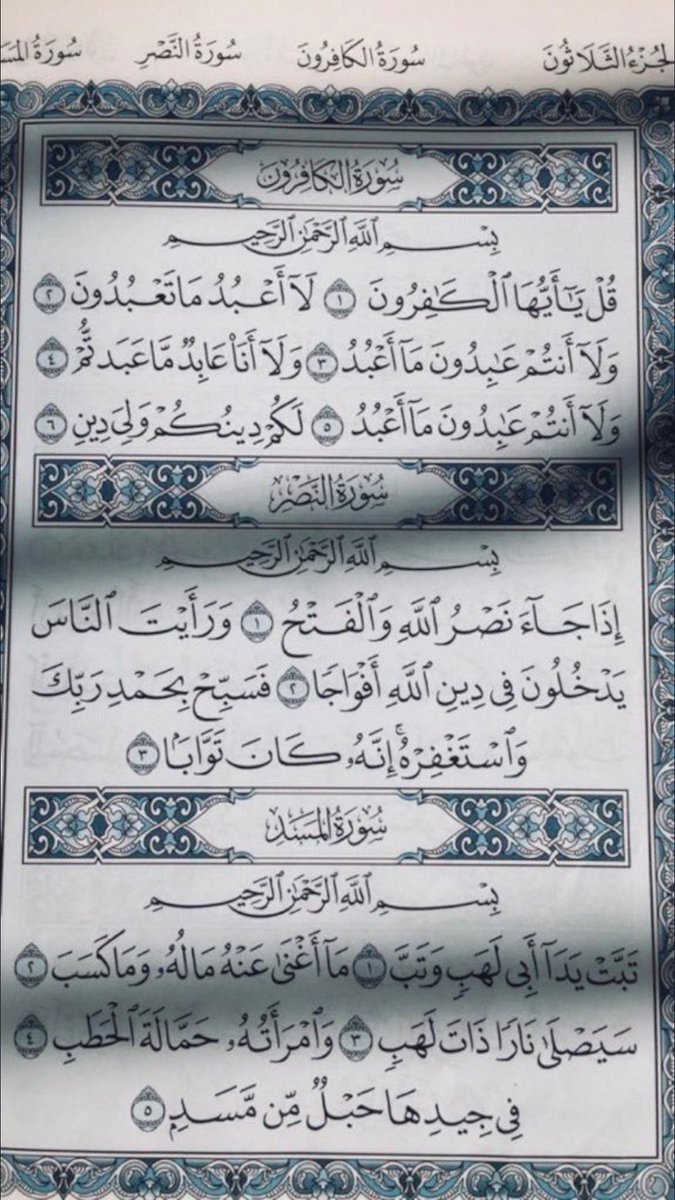 الجُزْءُ الثَّلَاثُونَ سُورَةُ الكَافِرُونَ سُورَةُ النَّصْرِ سُورَةُ
سُورَةُ الكَافِرُونَ
بِسْمِ ٱللَّهِ ٱلرَّحْمَٰنِ ٱلرَّحِيمِ
قُلْ يَٰٓأَيُّهَا ٱلْكَٰفِرُونَ ١ لَآ أَعْبُدُ مَا تَعْبُدُونَ ٢
وَلَآ أَنتُمْ عَٰبِدُونَ مَآ أَعْبُدُ ٣ وَلَآ أَنَا۠ عَابِدٌ مَّا عَبَدتُّمْ ٤
وَلَآ أَنتُمْ عَٰبِدُونَ مَآ أَعْبُدُ ٥ لَكُمْ دِينُكُمْ وَلِىَ دِينِ ٦
سُورَةُ النَّصْرِ
بِسْمِ ٱللَّهِ ٱلرَّحْمَٰنِ ٱلرَّحِيمِ
إِذَا جَآءَ نَصْرُ ٱللَّهِ وَٱلْفَتْحُ ١ وَرَأَيْتَ ٱلنَّاسَ
يَدْخُلُونَ فِى دِينِ ٱللَّهِ أَفْوَاجًا ٢ فَسَبِّحْ بِحَمْدِ رَبِّكَ
وَٱسْتَغْفِرْهُ ۚ إِنَّهُۥ كَانَ تَوَّابًۢا ٣
سُورَةُ المَسَدِ
بِسْمِ ٱللَّهِ ٱلرَّحْمَٰنِ ٱلرَّحِيمِ
تَبَّتْ يَدَآ أَبِى لَهَبٍ وَتَبَّ ١ مَآ أَغْنَىٰ عَنْهُ مَالُهُۥ وَمَا كَسَبَ ٢
سَيَصْلَىٰ نَارًا ذَاتَ لَهَبٍ ٣ وَٱمْرَأَتُهُۥ حَمَّالَةَ ٱلْحَطَبِ ٤
فِى جِيدِهَا حَبْلٌ مِّن مَّسَدٍۭ ٥